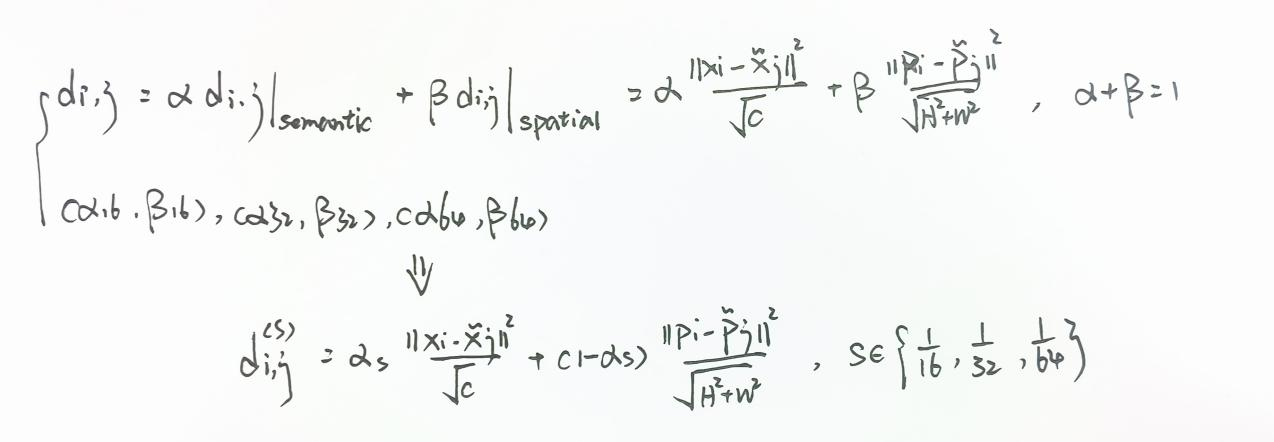 d_{i,j} = α d_{i,j}|_{semantic} + β d_{i,j}|_{spatial} = α ‖x_i - x̃_j‖² / √C + β ‖p_i - p̃_j‖² / √(H²+W²) , α+β=1
(α_{16}, β_{16}), (α_{32}, β_{32}), (α_{64}, β_{64})
⇓
d_{i,j}^{(s)} = α_s ‖x_i - x̃_j‖² / √C + (1-α_s) ‖p_i - p̃_j‖² / √(H²+W²) , s∈{1/16, 1/32, 1/64}